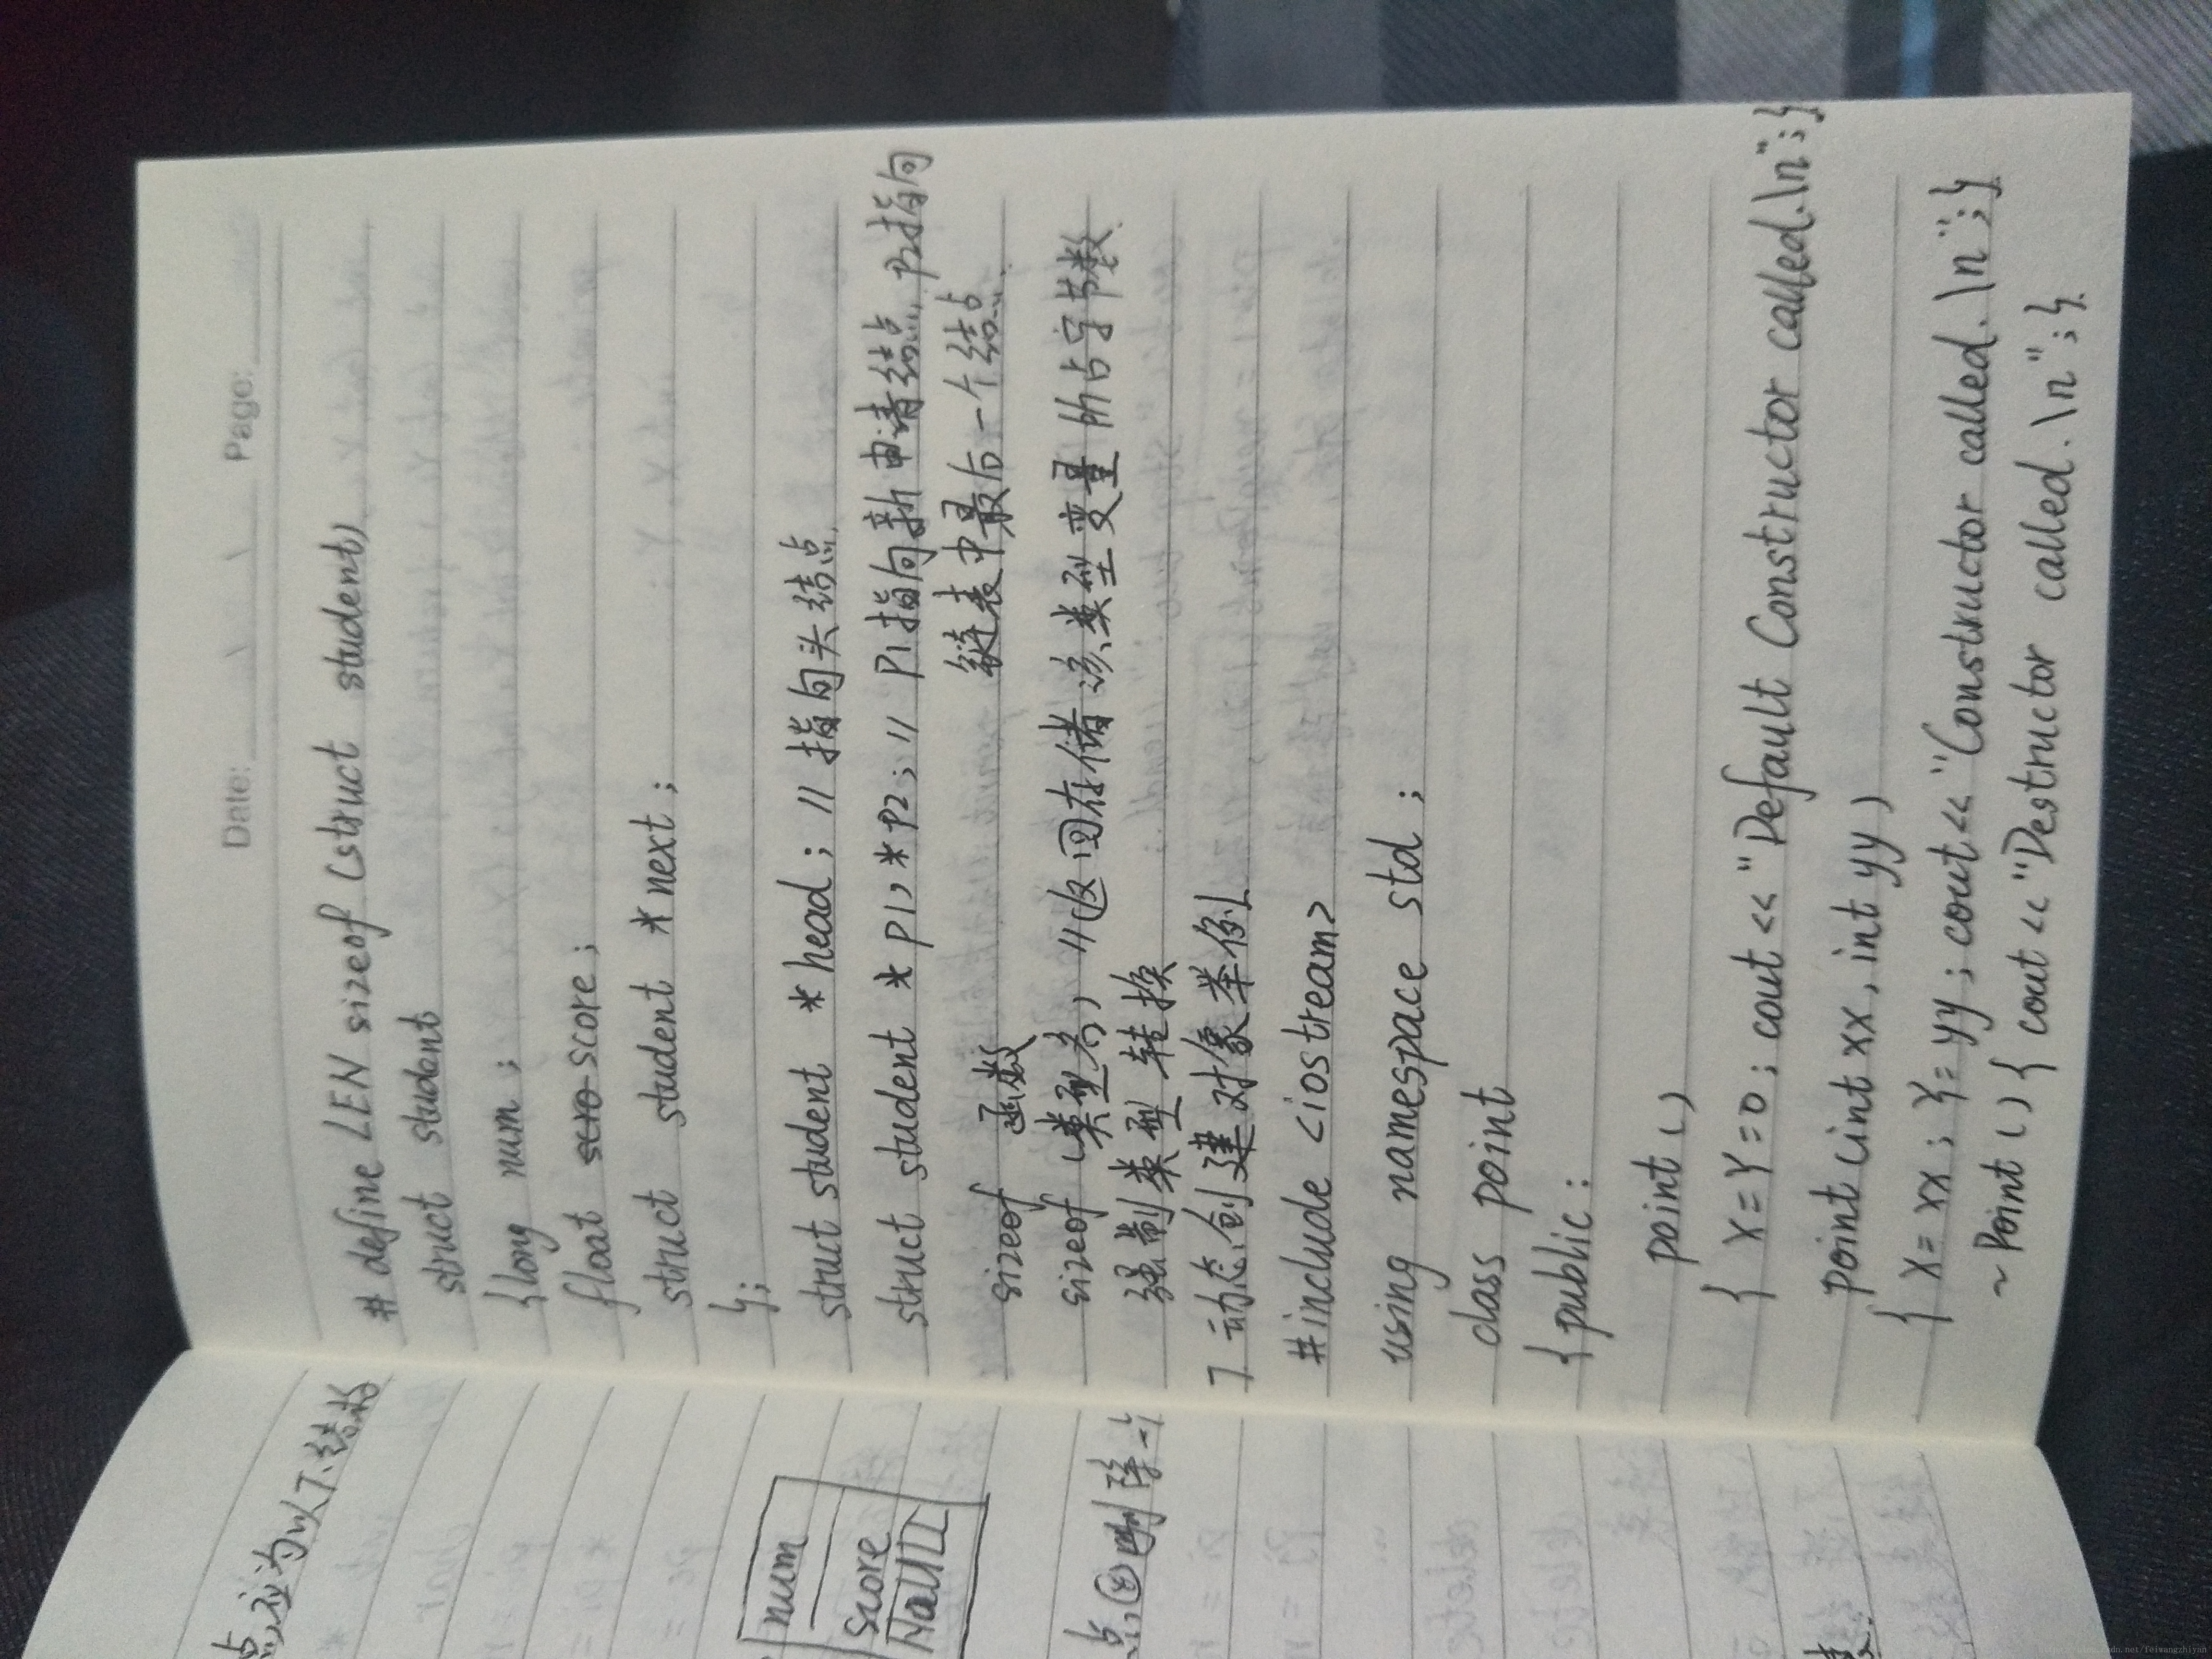 Date: Page:
# define LEN sizeof (struct student)
struct student
{long num;
float scro score;
struct student *next;
};
struct student *head; // 指向头结点
struct student *P1, *P2; // P1指向新申请结点, P2指向
链表中最后一个结点.
sizeof 函数
sizeof (类型名) //返回存储该类型变量所占字节数.
强制类型转换
7 动态创建对象举例
#include <iostream>
using namespace std;
class point
{public:
point()
{ X=Y=0; cout<<"Default Constructor called.\n";}
point(int xx, int yy)
{ X=xx; Y=yy; cout<<"Constructor called.\n";}
~Point(){cout<<"Destructor called.\n";}
点,应为以下结构
num
score
NULL
点,②删除一个